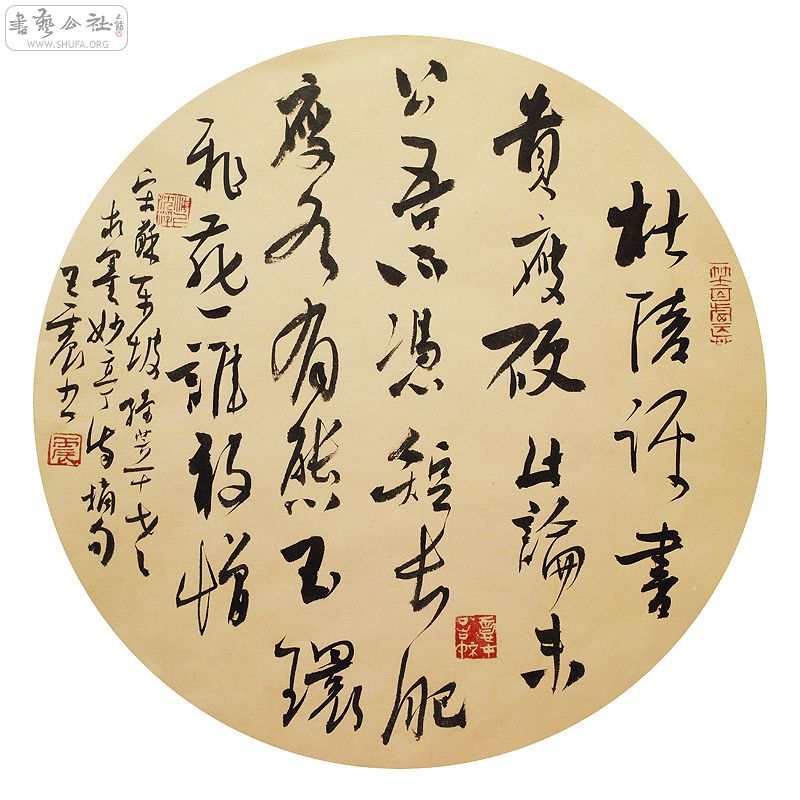 書藝公社
WWW.SHUFA.ORG
杜陵評書
貴瘦硬此論未
公吾不憑短長肥
瘦各有態玉環
飛燕誰敢憎
宋蘇東坡孫莘老
求墨妙亭詩摘句
王震書